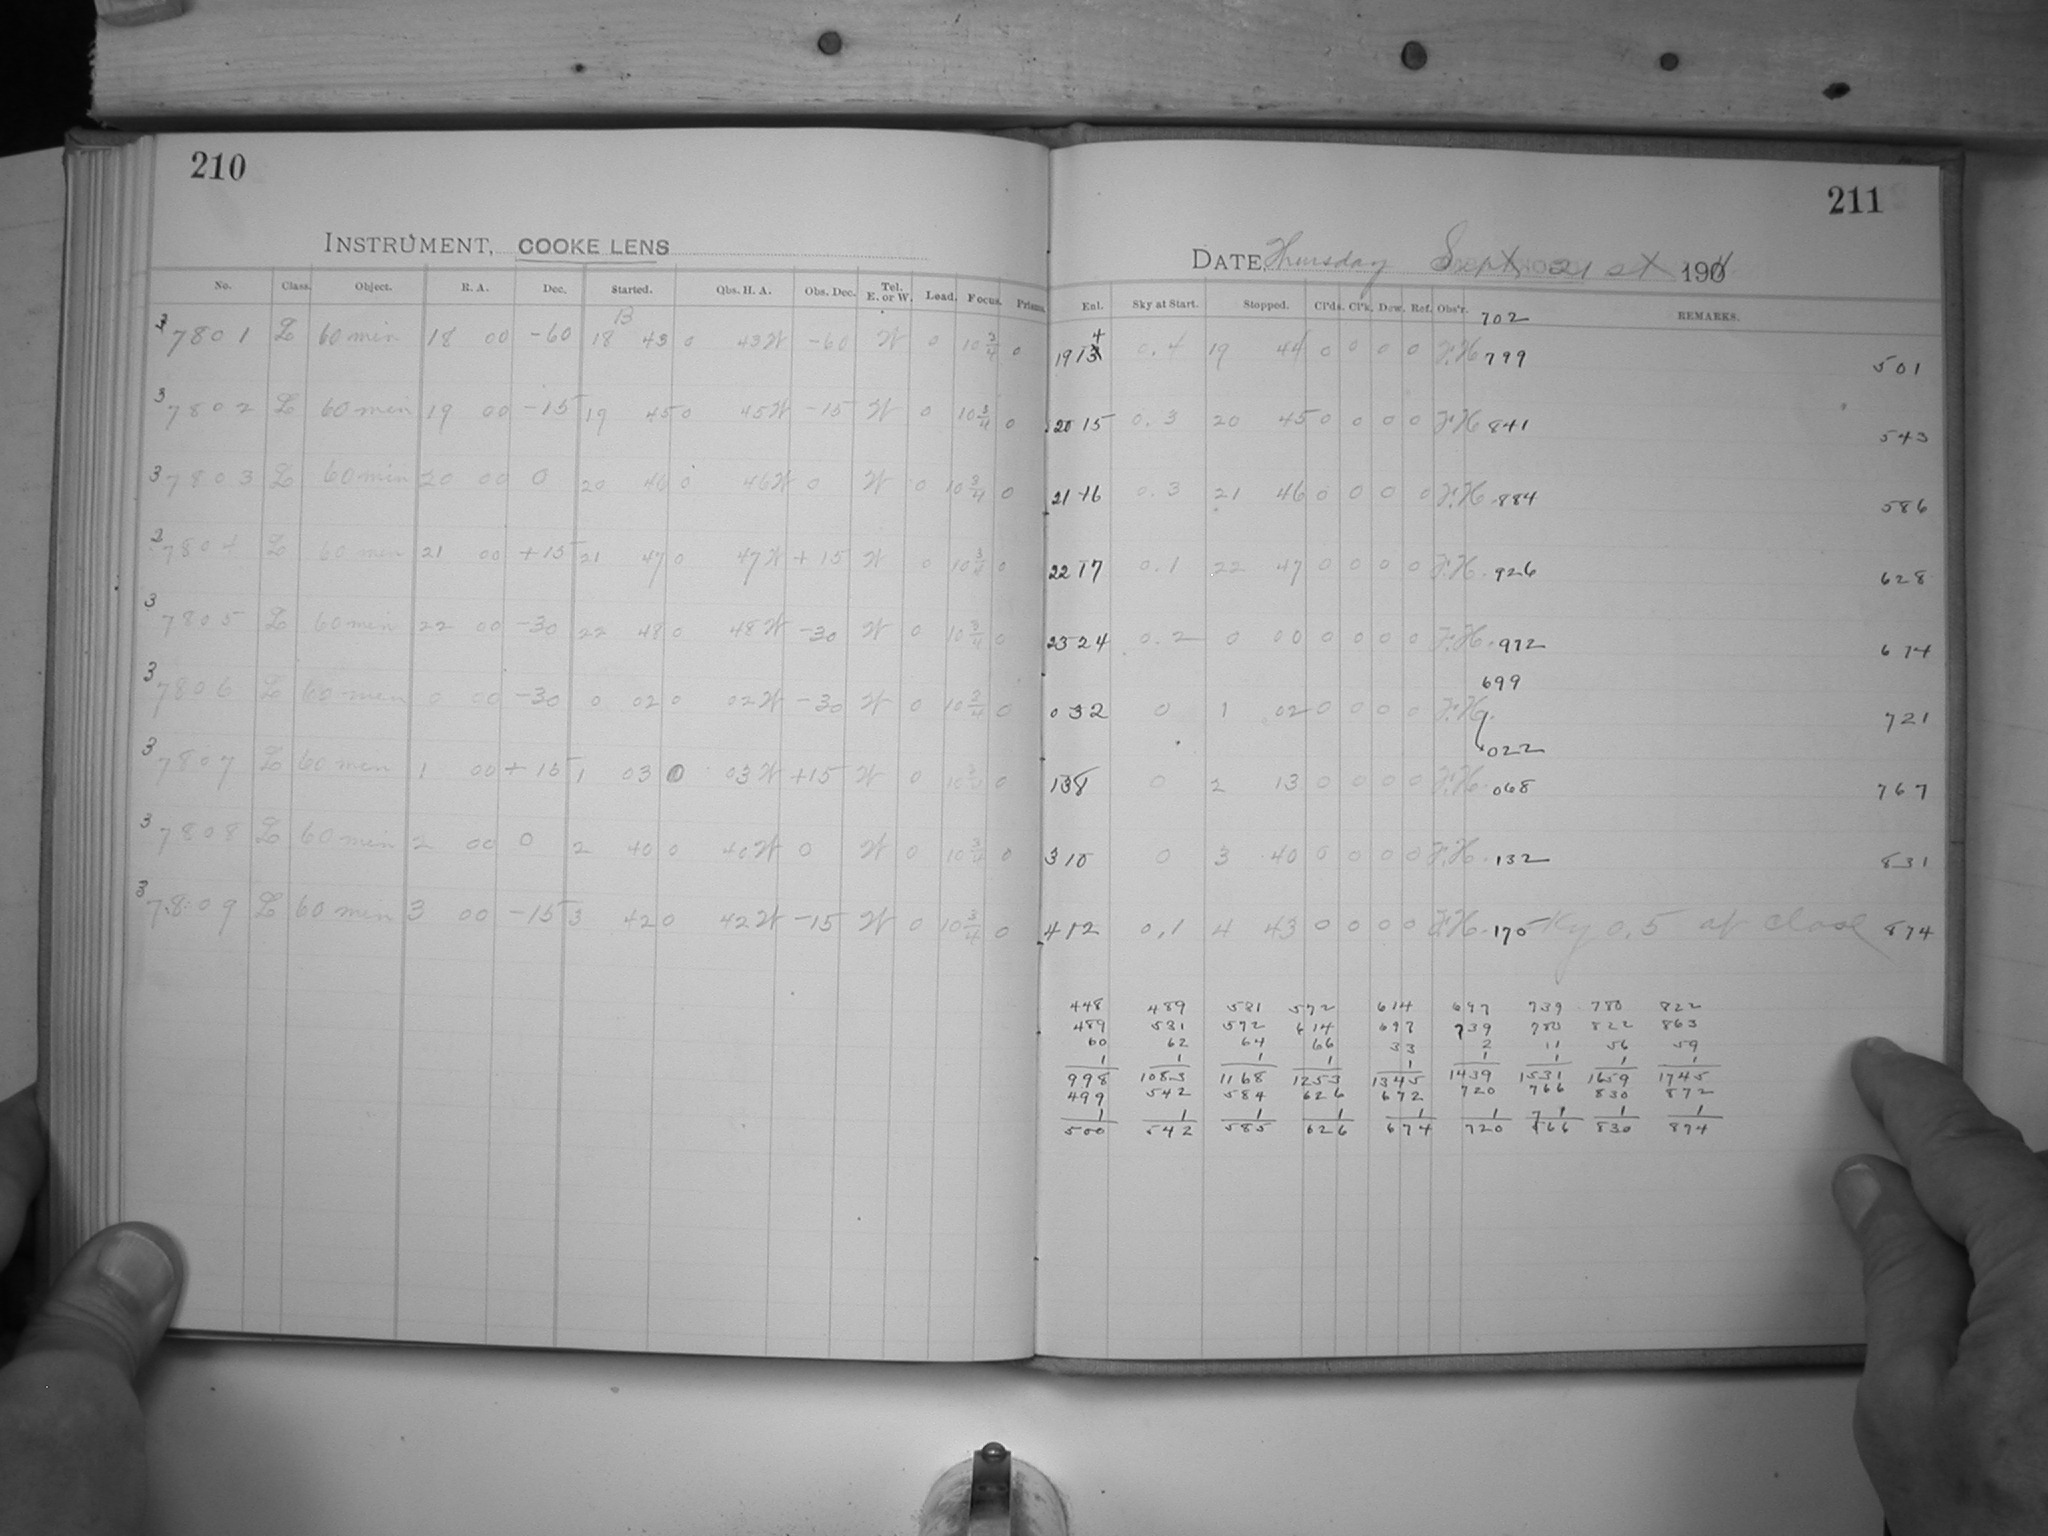 210
INSTRUMENT, COOKE LENS
No. Class. Object. R. A. Dec. Started. Obs. H. A. Obs. Dec. Tel. E. or W. Load. Focus. Prisms.
13
3 7801 L 60 min 18 00 -60 18 43 0 43 W -60 W 0 10 3/4 0
3 7802 L 60 min 19 00 -15 19 45 0 45 W -15 W 0 10 3/4 0
3 7803 L 60 min 20 00 0 20 46 0 46 W 0 W 0 10 3/4 0
3 7804 L 60 min 21 00 +15 21 47 0 47 W +15 W 0 10 3/4 0
3 7805 L 60 min 22 00 -30 22 48 0 48 W -30 W 0 10 3/4 0
3 7806 L 60 min 0 00 -30 0 02 0 02 W -30 W 0 10 3/4 0
3 7807 L 60 min 1 00 +15 1 03 0 03 W +15 W 0 10 3/4 0
3 7808 L 60 min 2 00 0 2 40 0 40 W 0 W 0 10 3/4 0
3 7809 L 60 min 3 00 -15 3 42 0 42 W -15 W 0 10 3/4 0
211
DATE, Thursday Sept 21st 190
Enl. Sky at Start. Stopped. Cl'ds. Cl'k. Dew. Ref. Obs'r. REMARKS.
702
4
19 13 0.4 19 44 0 0 0 0 F.H. 799 501
20 15 0.3 20 45 0 0 0 0 F.H. 841 543
21 16 0.3 21 46 0 0 0 0 F.H. 884 586
22 17 0.1 22 47 0 0 0 0 F.H. 926 628
23 24 0.2 0 00 0 0 0 0 F.H. 972 674
699
0 32 0 1 02 0 0 0 0 F.H. 721
022
1 38 0 2 13 0 0 0 0 F.H. 068 767
3 10 0 3 40 0 0 0 0 F.H. 132 831
4 12 0.1 4 43 0 0 0 0 F.H. 170 Sky 0.5 at close 874
448 489 531 572 614 697 739 780 822
489 531 572 614 697 739 780 822 863
60 62 64 66 33 2 11 56 59
1 1 1 1 1 1 1 1 1
998 1083 1168 1253 1345 1439 1531 1659 1745
499 542 584 626 672 720 766 830 872
1 1 1 1 1 1 1 1 1
500 542 585 626 674 720 766 830 874